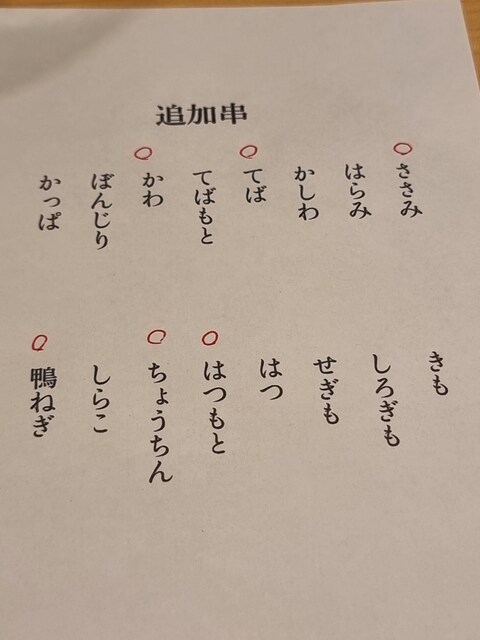 追加串
ささみ
はらみ
かしわ
てば
てばもと
かわ
ぼんじり
かっぱ
きも
しろぎも
せぎも
はつ
はつもと
ちょうちん
しらこ
鴨ねぎ